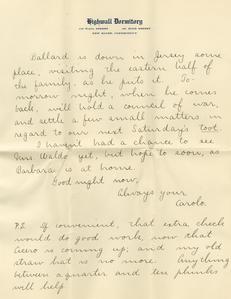 Highwall Dormitory
Ballard is down in Jersey some
place, visiting the eastern half of
the family, as he puts it. To-
morrow night, when he comes
back, will hold a council of war,
and settle a few small matters in
regard to our next Saturday's toot.
I haven't had a chance to see
Waldo yet, but hope to soon, as
Barbara is at home.
Good night now,
Always your
Carolo.
P.S. If convenient, that extra check
would do good work, now that
Cicero is coming up; and my old
straw hat is no more. Anything
between a quarter and ten plunks
will help